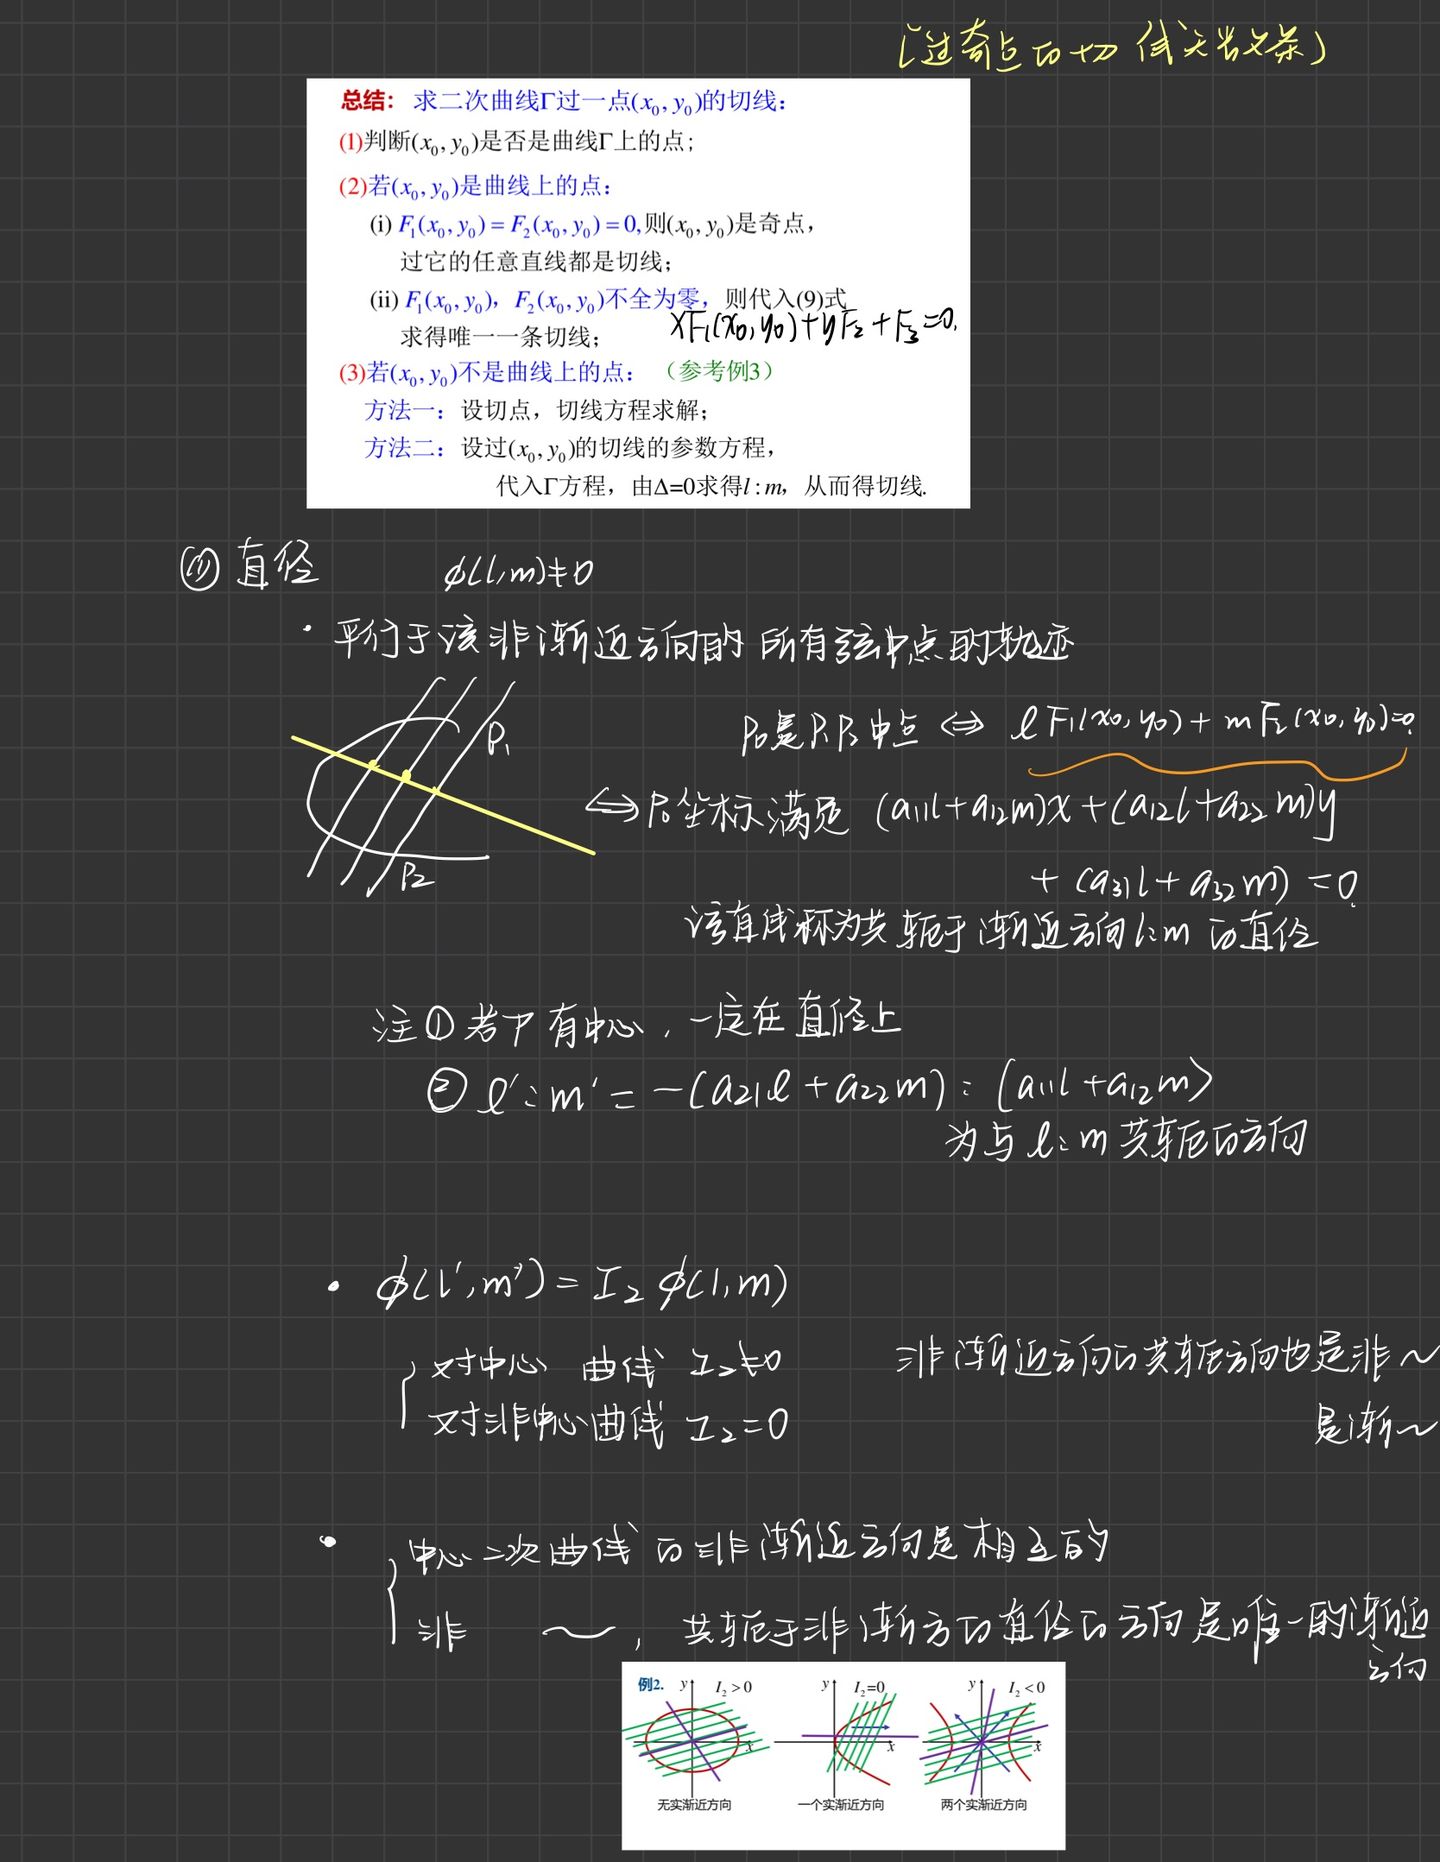 (过奇点的切线无数条)
总结： 求二次曲线Γ过一点(x₀, y₀)的切线：
(1)判断(x₀, y₀)是否是曲线Γ上的点;
(2)若(x₀, y₀)是曲线上的点：
(i) F₁(x₀, y₀) = F₂(x₀, y₀) = 0, 则(x₀, y₀)是奇点，
过它的任意直线都是切线；
(ii) F₁(x₀, y₀)，F₂(x₀, y₀)不全为零，则代入(9)式
求得唯一一条切线； xF₁(x₀,y₀)+yF₂+F₃=0.
(3)若(x₀, y₀)不是曲线上的点： （参考例3）
方法一：设切点，切线方程求解；
方法二：设过(x₀, y₀)的切线的参数方程，
代入Γ方程，由Δ=0求得l : m，从而得切线.
直径 ϕ(l,m)≠0
· 平行于该非渐近方向的 所有弦中点的轨迹
P₁
P₀是P₁P₂中点 ⇔ lF₁(x₀,y₀)+mF₂(x₀,y₀)=0.
⇔ P₀坐标满足 (a₁₁l+a₁₂m)x+(a₁₂l+a₂₂m)y
P₂
+(a₃₁l+a₃₂m)=0.
该直线称为共轭于渐近方向l:m的直径
注①若Γ有中心，一定在直径上
② l′:m′=-(a₂₁l+a₂₂m):(a₁₁l+a₁₂m)
为与l:m共轭的方向
· ϕ(l′,m′)=I₂ϕ(l,m)
{ 对中心 曲线 I₂≠0 非渐近方向的共轭方向也是非～
对非中心曲线 I₂=0 是渐～
· { 中心二次曲线的非渐近方向是相互的
非 ～，共轭于非渐方的直径的方向是唯一的渐近
方向
例2. y I₂ > 0 y I₂=0 y I₂ < 0
x x x
无实渐近方向 一个实渐近方向 两个实渐近方向